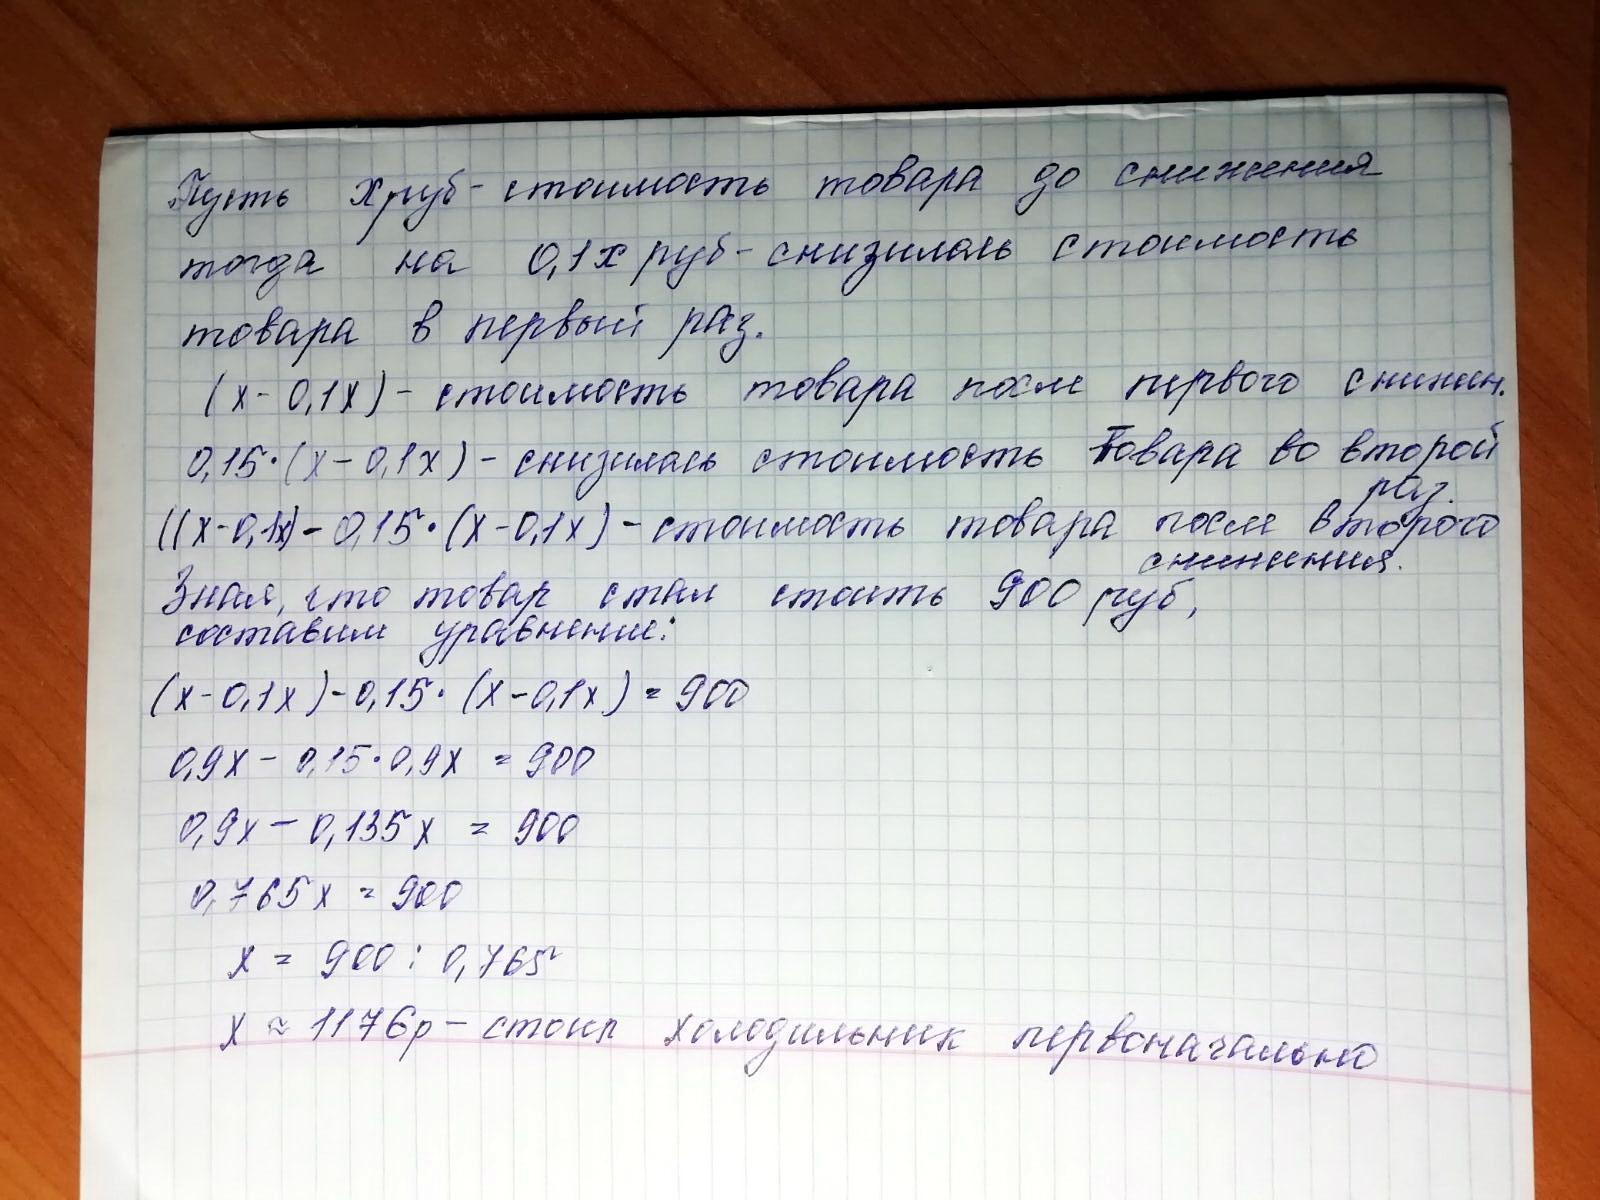 Пусть х руб - стоимость товара до снижения
тогда на 0,1х руб - снизилась стоимость
товара в первый раз.
(х - 0,1х) - стоимость товара после первого снижен.
0,15·(х - 0,1х) - снизилась стоимость товара во второй
раз.
((х-0,1х) - 0,15·(х-0,1х) - стоимость товара после второго
снижения.
Зная, что товар стал стоить 900 руб,
составим уравнение:
(х-0,1х)-0,15·(х-0,1х) = 900
0,9х - 0,15·0,9х = 900
0,9х - 0,135х = 900
0,765х = 900
х = 900 : 0,765
х ≈ 1176р - стоил холодильник первоначально